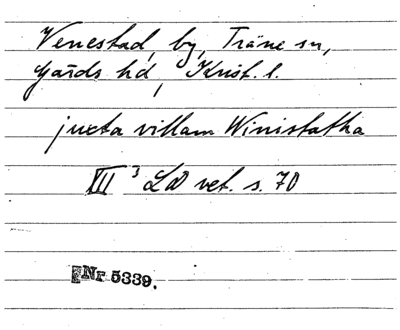 Venestad, by, Träne sn,
Gärds hd, Krist. l.
juxta villam Winistatha
XIII³ LD vet. s. 70
Nr 5339.